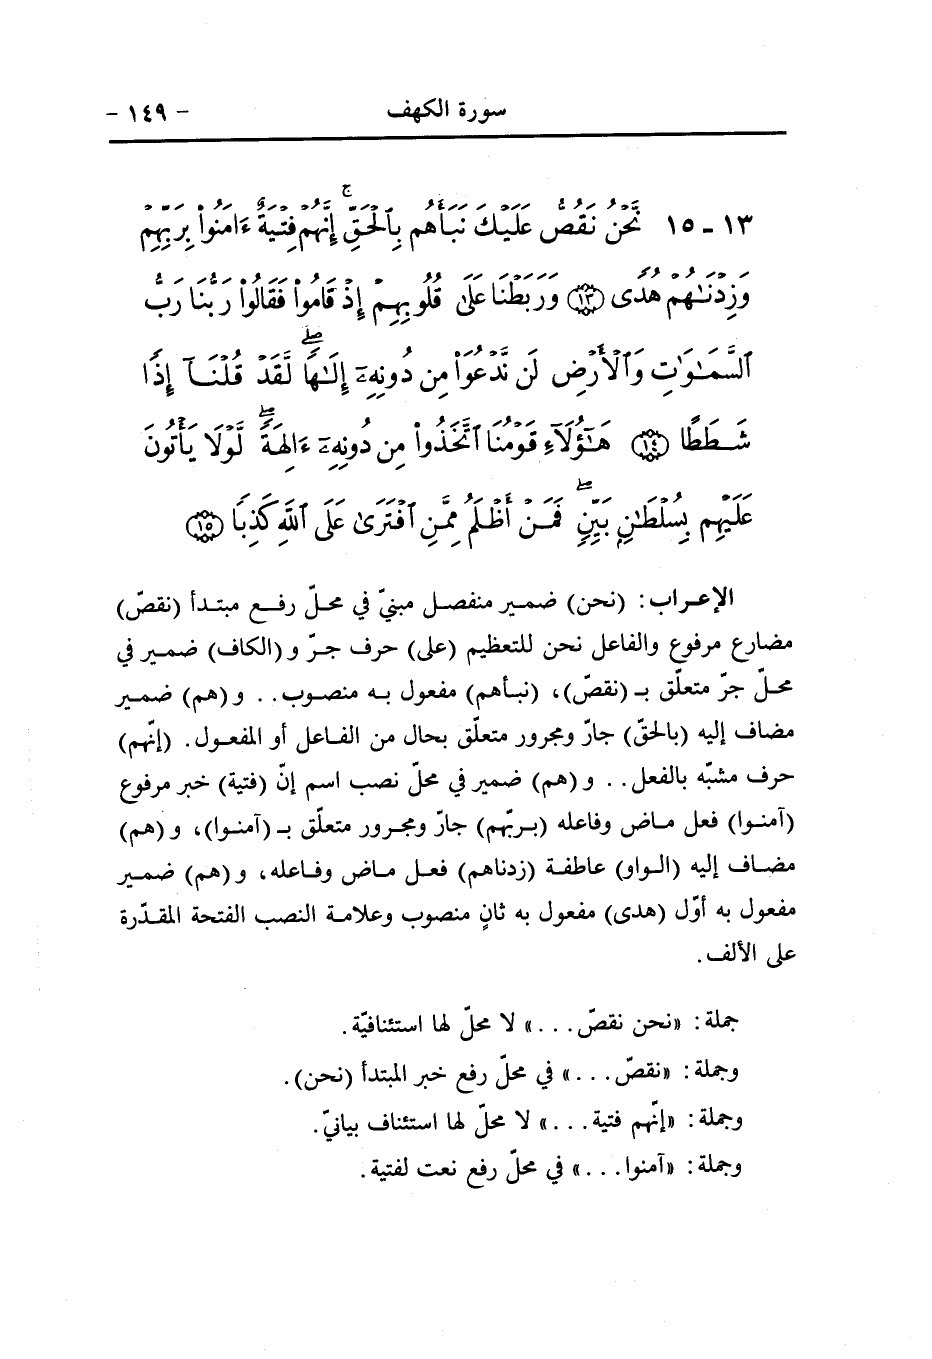 سورة الكهف - ١٤٩ -
١٣ - ١٥ نَّحْنُ نَقُصُّ عَلَيْكَ نَبَأَهُم بِٱلْحَقِّ ۚ إِنَّهُمْ فِتْيَةٌ ءَامَنُوا۟ بِرَبِّهِمْ
وَزِدْنَٰهُمْ هُدًى ﴿١٣﴾ وَرَبَطْنَا عَلَىٰ قُلُوبِهِمْ إِذْ قَامُوا۟ فَقَالُوا۟ رَبُّنَا رَبُّ
ٱلسَّمَٰوَٰتِ وَٱلْأَرْضِ لَن نَّدْعُوَا۟ مِن دُونِهِۦٓ إِلَٰهًا ۖ لَّقَدْ قُلْنَآ إِذًا
شَطَطًا ﴿١٤﴾ هَٰٓؤُلَآءِ قَوْمُنَا ٱتَّخَذُوا۟ مِن دُونِهِۦٓ ءَالِهَةً ۖ لَّوْلَا يَأْتُونَ
عَلَيْهِم بِسُلْطَٰنٍۭ بَيِّنٍ ۖ فَمَنْ أَظْلَمُ مِمَّنِ ٱفْتَرَىٰ عَلَى ٱللَّهِ كَذِبًا ﴿١٥﴾
الإعراب: (نحن) ضمير منفصل مبنيّ في محلّ رفع مبتدأ (نقصّ)
مضارع مرفوع والفاعل نحن للتعظيم (على) حرف جرّ و(الكاف) ضمير في
محلّ جرّ متعلّق بـ (نقصّ)، (نبأهم) مفعول به منصوب.. و(هم) ضمير
مضاف إليه (بالحقّ) جارّ ومجرور متعلّق بحال من الفاعل أو المفعول. (إنّهم)
حرف مشبّه بالفعل.. و(هم) ضمير في محلّ نصب اسم إنّ (فتية) خبر مرفوع
(آمنوا) فعل ماض وفاعله (بربّهم) جارّ ومجرور متعلّق بـ (آمنوا)، و(هم)
مضاف إليه (الواو) عاطفة (زدناهم) فعل ماض وفاعله، و(هم) ضمير
مفعول به أوّل (هدى) مفعول به ثانٍ منصوب وعلامة النصب الفتحة المقدّرة
على الألف.
جملة: «نحن نقصّ...» لا محلّ لها استئنافيّة.
وجملة: «نقصّ...» في محلّ رفع خبر المبتدأ (نحن).
وجملة: «إنّهم فتية...» لا محلّ لها استئناف بيانيّ.
وجملة: «آمنوا...» في محلّ رفع نعت لفتية.